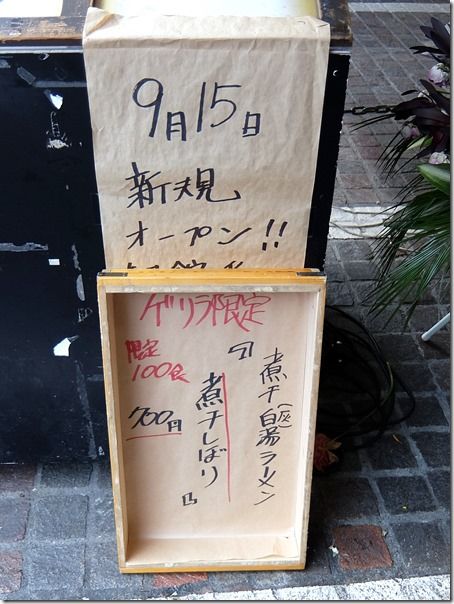 9月15日
新規
オープン!!
ゲリラ限定
「煮干白湯(灰)ラーメン
煮干しぼり」
限定
100食
700円